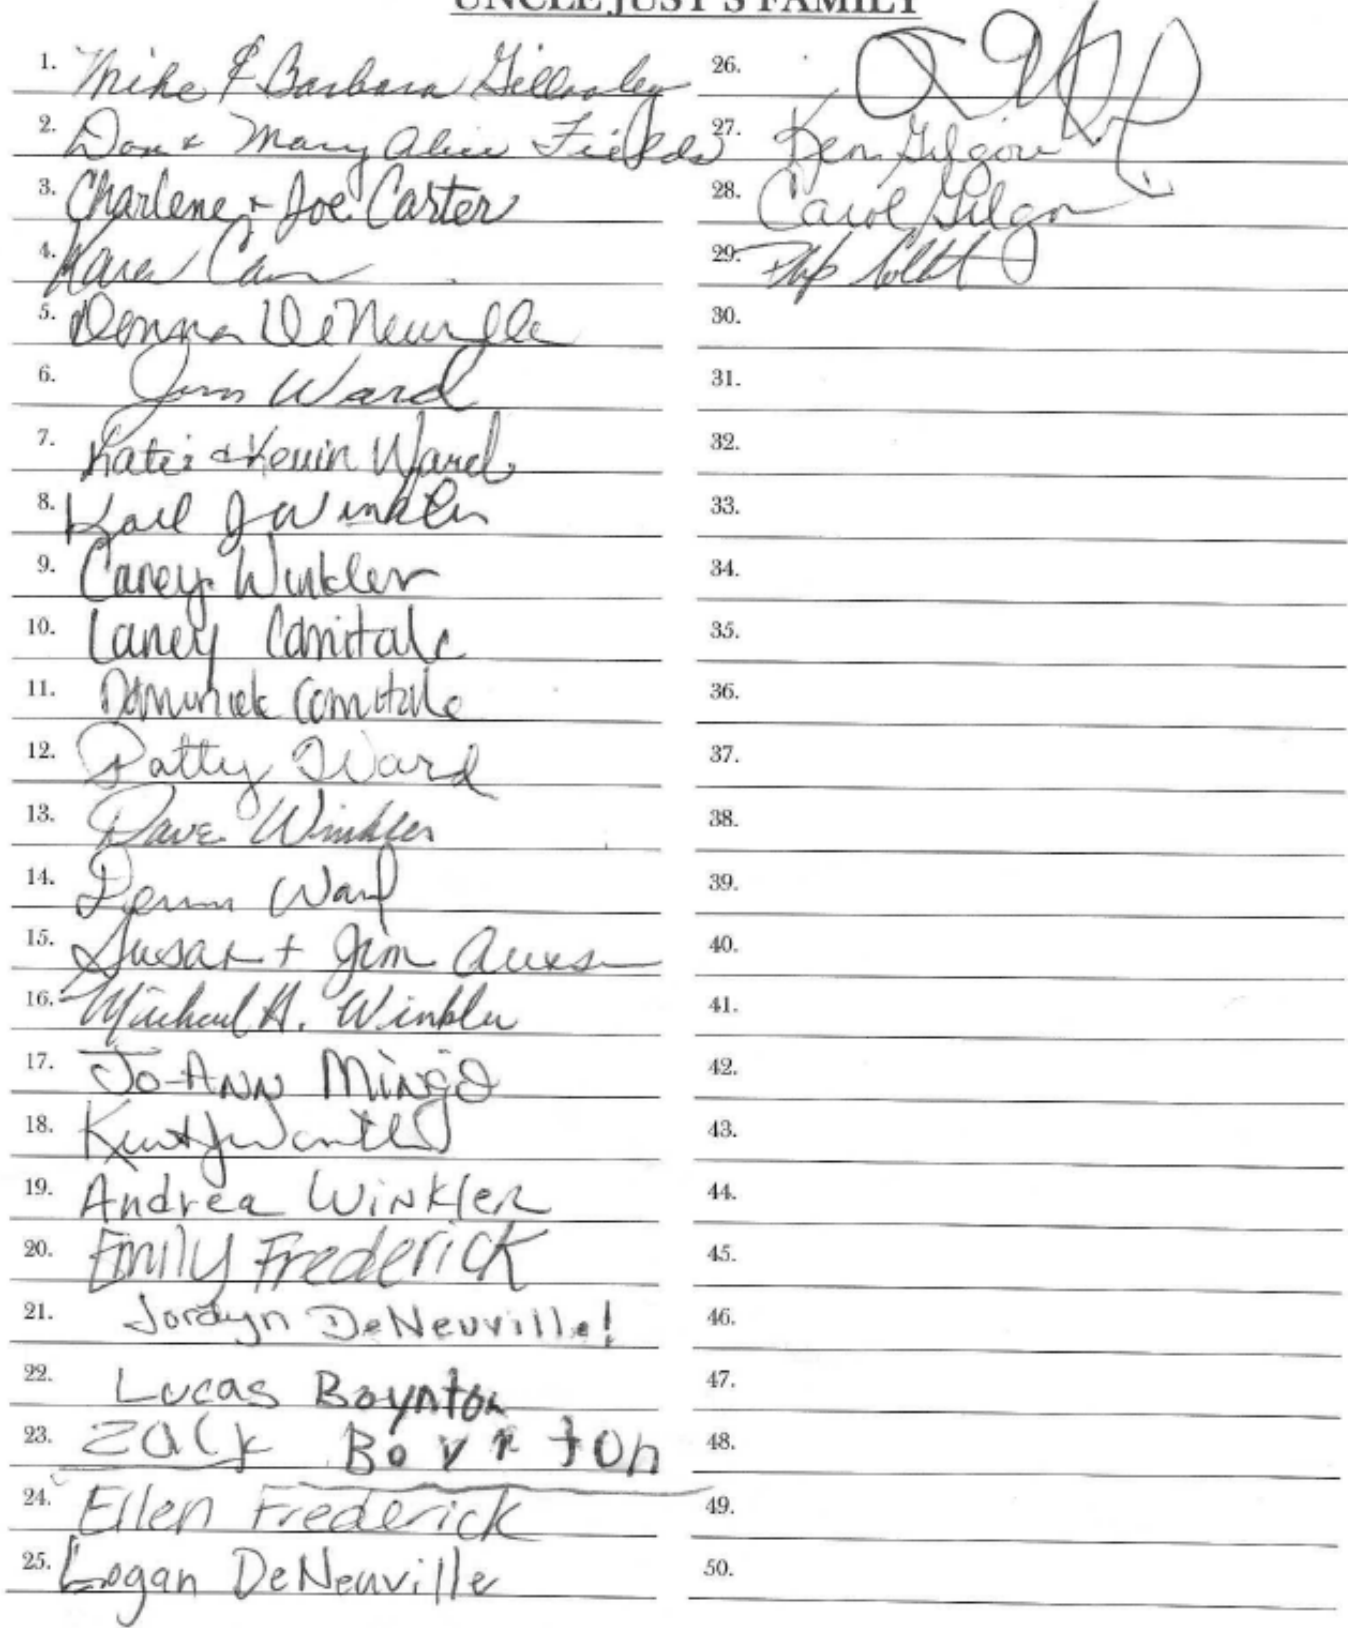 UNCLE JUST'S FAMILY
1. Mike & Barbara Gillooley
2. Don + Mary Alice Fields
3. Charlene + Joe Carter
4. Karen
5. Donna DeNeuville
6. Jim Ward
7. Katie & Kevin Ward
8. Karl J Winkler
9. Caney Winkler
10. Laney Comitale
11. Dominick Comitale
12. Patty Ward
13. Dave Winkler
14. Ward
15. Susan + Jim
16. Michael H. Winkler
17. Jo-Ann Mingo
18. Kurt J
19. Andrea Winkler
20. Emily Frederick
21. Jordyn DeNeuville!
22. Lucas Boynton
23. Zack Boynton
24. Ellen Frederick
25. Logan DeNeuville
26.
27. Ken Gilgour
28. Carol
29.
30.
31.
32.
33.
34.
35.
36.
37.
38.
39.
40.
41.
42.
43.
44.
45.
46.
47.
48.
49.
50.